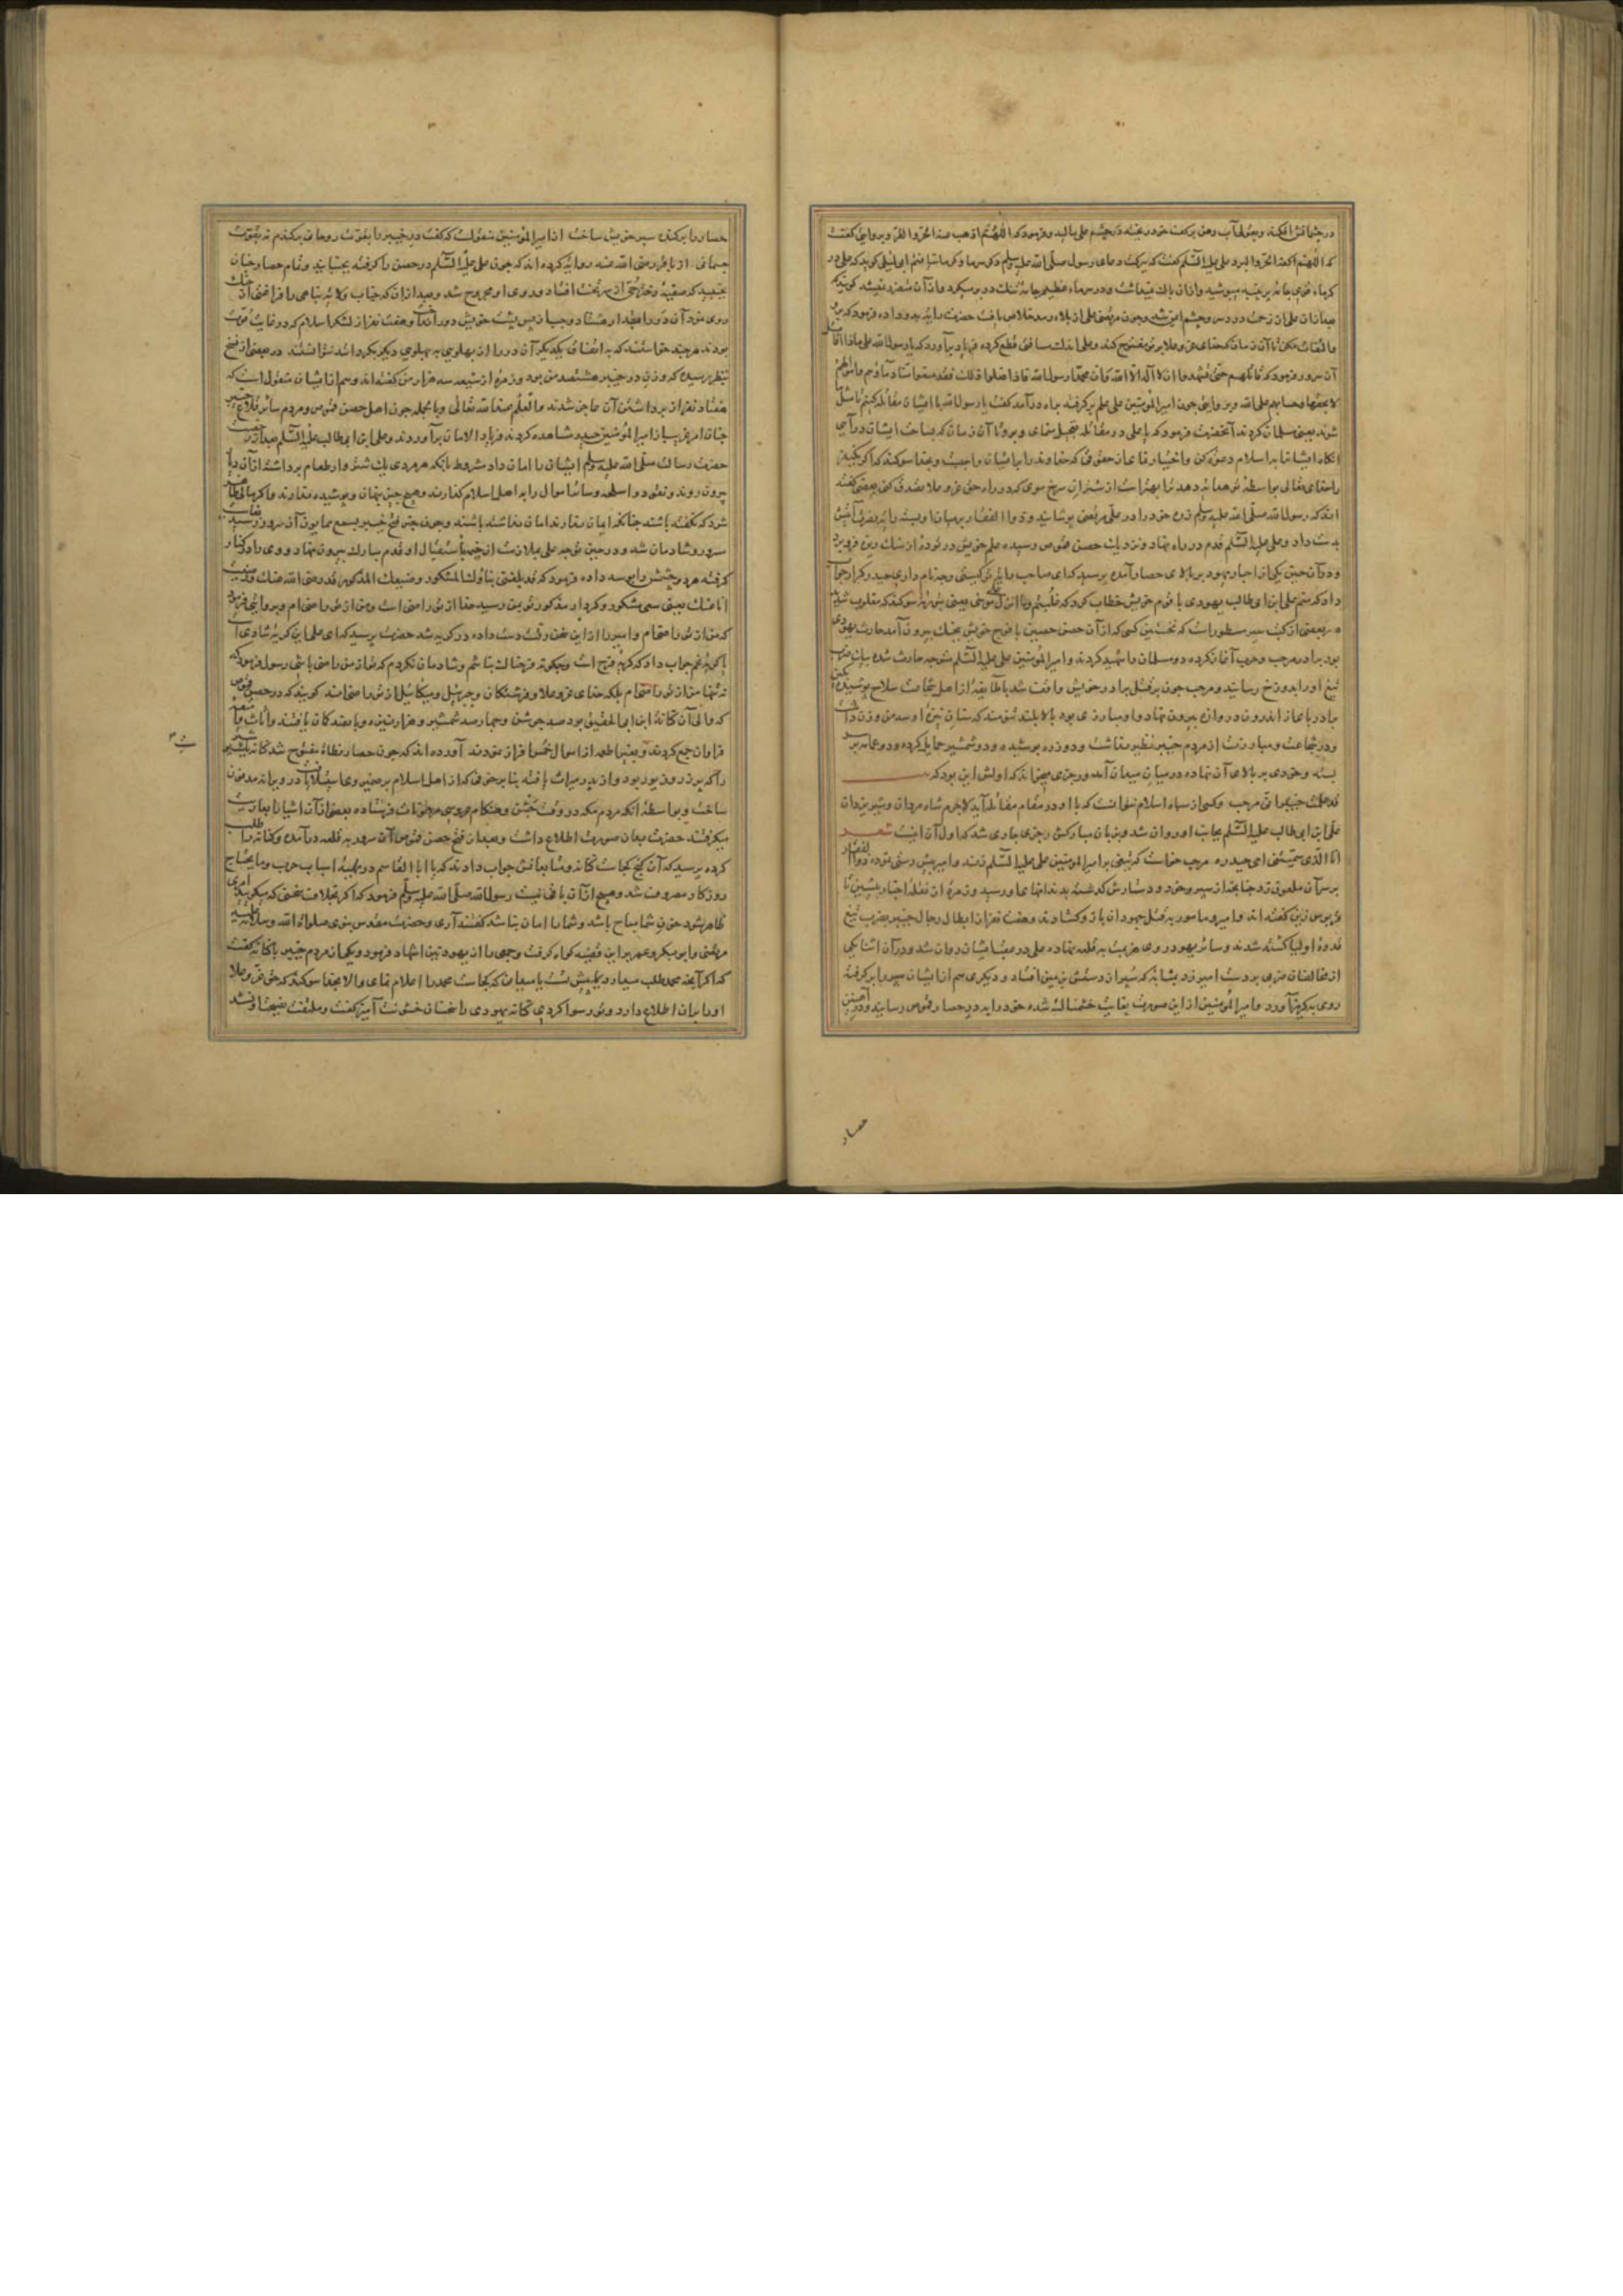 در چشمانش افکند و بقولی آب دهن بر کف خود ریخته در چشم علی مالید و فرمود که اللهم اذهب عنه الحر و القر و بروایتی گفت
که اللهم اکفه الحر و البرد علی علیه السلم گفت که ببرکت دعای رسول صلی الله علیه وسلم دیگر سرما و گرما نیافتم ابی لیلی گوید که علی در
کرماء قوی جامهٔ پر پنبه میپوشید و ازان باک نمیداشت و در سرماء عظیم جامهٔ تنک در بر میکرد و ازان متضرر نمیشد گویند که
بعد ازان علی از زحمت درد سر و چشم ایمن شد و چون مرتضی علی از بلاء رمد خلاص یافت حضرت رایت بدو داده فرمود که برو
و التفات مکن تا آن زمان که خدای عز و علا بر تو مفتوح کند و علی اندک مسافتی قطع کرده فریاد برآورد که یا رسول الله علی ماذا اقاتل
آن سرور فرمود که قاتلهم حتی یشهدوا ان لا اله الا الله و ان محمدا رسول الله فاذا فعلوا ذلک فقد منعوا منا دماؤهم و اموالهم
الا بحقها و حسابهم علی الله و بروایتی چون امیرالمؤمنین علی علم برگرفته براه درآمد گفت یا رسول الله با ایشان مقاتله کنم تا مثل ما
شوند یعنی مسلمان گردند آنحضرت فرمود که یا علی در مقاتله تعجیل منمای و برو تا آن زمان که بساحت ایشان درآیی
آنگاه ایشانرا به اسلام دعوت کن و اخبار نمای از حقوقی که خداوند را بر ایشان واجبست و بخدا سوگند که اگر یکی را
خدای تعالی بواسطهٔ تو هدایت دهد ترا بهتر است از شتران سرخ موی که در راه حق عز و علا تصدق کنی بعضی گفته
اند که رسول الله صلی الله علیه وسلم زره خود را در علی مرتضی پوشانید و ذوالفقار بر میان او بسته رایت بمبارک خویش
بدست داد و علی علیه السلم قدم در راه نهاد و نزدیک حصن قموص رسیده علم خویش در توده از سنگ ریزه فرو برد
و در آن حین یکی از احبار یهود بر بالای حصار آمده پرسید که ای صاحب رایت تو کیستی و چه نام داری حیدر کرار جواب
داد که منم علی ابن ابی طالب یهودی با قوم خویش خطاب کرد که غلبتم و ما انزل علی موسی یعنی بتوریة سوگند که مغلوب شدید
در بعضی از کتب سیر مسطور است که نخستین کسی که از آن حصن حصین با فوج خویش بجنک بیرون آمد حارث یهودی
بود برادر مرحب و حرب آغاز کرده دو مسلمان را شهید کردند و امیرالمؤمنین علی علیه السلم متوجه حارث شده بیک ضرب
تیغ او را بدوزخ رسانید و مرحب چون بر قتل برادر خویش واقف شد با طایفهٔ از اهل شجاعت سلاح پوشیده
برادر باعزاز اندرون دروازه بیرون نهاد و او مبارزی بود بالا بلند تنومند که سنان نیزهٔ او سه من وزن داشت
و در شجاعت و مبارزت از مردم خیبر نظیر نداشت و دو زره پوشیده و دو شمشیر حمایل کرده و دو عمامه بر سر
بسته و خودی بر بالای آن نهاده در میان میدان آمد و رجزی میخواند که اولش این بود که
قد علمت خیبر انی مرحب و کسی از سپاه اسلام نتوانست که با او در مقام مقاتله آید لاجرم شاه مردان و شیر یزدان
علی ابن ابی طالب علیه السلم بجانب او روان شد و بزبان مبارکش رجزی جاری شد که اول آن اینست شعر
انا الذی سمتنی امی حیدره مرحب خواست که تیغی بر امیرالمؤمنین علی علیه السلم زند و امیر پیش دستی نموده ذوالفقار
بر سر آن ملعون زد چنانچه از سپر و خود و دستارش گذشته بدندانهای او رسید و زمرهٔ از نقلهٔ اخبار بشین تا
قربوس زین گفته اند و امیر و مامور به قتل جهودان باز و گشادند و هفت نفر از ابطال رجال خیبر بضرب تیغ
قدوهٔ اولیا کشته شدند و سائر یهود روی هزیمت به قلعه نهاده علی در عقب ایشان روان شد و در آن اثنا یکی
از مخالفان ضربی بر دست امیر زد بمثابهٔ که سپر از دستش بر زمین افتاد و دیگری هم از ایشان سپر را بر گرفته
روی بگریز آورد و امیرالمؤمنین از این صورت بغایت خشمناک شده خود را به در حصار قموص رسانید و در آهنین
حصار
حصار را برکنده سپر خویش ساخت از امیرالمؤمنین منقولست که گفت در خیبر را بقوت روحانی برکندم نه بقوت
جسمانی از باقر رضی الله عنه روایت کرده اند که چون علی علیه السلم در حصن را گرفته بجنبانید و تمام حصار چنان
بجنبید که صفیه دختر حیی از سر تخت افتاد و روی او مجروح شد و بعد ازان که جناب ولایت پناهی را فراغتی از جنک
روی نمود آن در را مقدار هشتاد وجب از پس پشت خویش دور انداخت و هفت نفر از لشکر اسلام که در غایت قوت
بودند هر چند خواستند که به اتفاق یکدیگر آن در را از پهلویی به پهلویی دیگر بگردانند نتوانستند در بعضی از نسخ
بنظر رسیده که وزن در خیبر هشتصد من بود و زمرهٔ از شیعه سه هزار من گفته اند و هم از ایشان منقول است که
هفتاد نفر از برداشتن آن عاجز شدند و العلم عند الله تعالی و بالجمله چون اهل حصن قموص و مردم سائر قلاع خیبر
چنان امر غریب از امیرالمؤمنین حیدر مشاهده کردند فریاد الامان برآوردند و علی ابن ابی طالب علیه السلم بعد از رخصت
حضرت رسالت صلی الله علیه وسلم ایشان را امان داد مشروط بانکه هر مردی یک شتر وار طعام برداشته ازان دیار
بیرون روند و نقود و اسلحه و سائر اموال را به اهل اسلام گذارند و هیچ چیز پنهان و پوشیده ندارند و اگر مالی ظاهر
شود که نگفته باشند چنانکه ایمان ندارند امان نداشته باشند و چون خبر فتح خیبر بسمع همایون آن سرور رسید بغایت
مسرور و شادمان شد و در حین توجه علی ملازمت از خیمه باستقبال او قدم مبارک بیرون نهاد و وی را در کنار
گرفته هر دو چشمش را بوسه داده فرمود که قد بلغنی بناؤک المشکور و صنیعک المذکور قد رضی الله عنک و رضیت
انا عنک یعنی سعی مشکور و کردار مذکور تو بمن رسید خدا از تو راضی است و من از تو راضی ام و بروایتی فرمود
که من از تو راضی ام و امیر را از این سخن رقت دست داده در گریه شد حضرت پرسید که ای علی این گریهٔ شادی است
یا گریهٔ غم جواب داد که گریهٔ فرح است و چگونه فرحناک نباشم و شادمان نگردم که تو از من راضی باشی رسول فرمود که
نه تنها من از تو راضی ام بلکه خدای عز و علا و فرشتگان و جبرئیل و میکائیل از تو راضی اند گویند که در حصن قموص
که والی آن کنانة ابن ابی الحقیق بود صد جوشن و چهار صد شمشیر و هزار نیزه و پانصد کمان یافتند و اثاث و امتعه
فراوان جمع کردند و بغیر اطعمه از اموال خمس افراز نمودند آورده اند که چون حصار نطاة مفتوح شد کنانه پوست شتر
را که پر زر و زیور بود و از پدر میراث یافته بنا بر خوفی که از اهل اسلام بر ضمیر وی استیلا یافت در ویرانه مدفون
ساخت و بواسطهٔ آنکه مردم مکه در وقت جشن و هنگام عروسی مرهونات فرستاده بعضی از آن اشیا را بعاریت
میگرفتند حضرت بدان صورت اطلاع داشت و بعد از فتح حصن قموص آن سرور به قلعه درآمده و کنانه را طلب
کرده پرسید که آن گنج کجاست کنانه و متابعانش جواب دادند که یا ابا القاسم در تهیهٔ اسباب حرب و ما یحتاج
روزگار مصروف شد و هیچ از آن باقی نیست رسول الله صلی الله علیه وسلم فرمود که اگر بخلاف سخنی که میگویید امری
ظاهر شود خون شما مباح باشد و شما را امان نباشد گفتند آری و حضرت مقدس نبوی صلوات الله و سلامه علیه
مرتضی و ابو بکر و عمر بر این قضیه گواه گرفت و جمعی را از یهود نیز اشهاد فرمود و یکی از مردم خیبر با کنانه گفت
که اگر آنچه محمد طلب میدارد پیش تست یا میدانی که کجاست محمد را اعلام نمای و الا بخدا سوگند که حق عز و علا
او را بران اطلاع دارد و تو رسوا گردی کنانه یهودی را سخنان خشونت آمیز گفت و ملتفت نصیحت او نشد